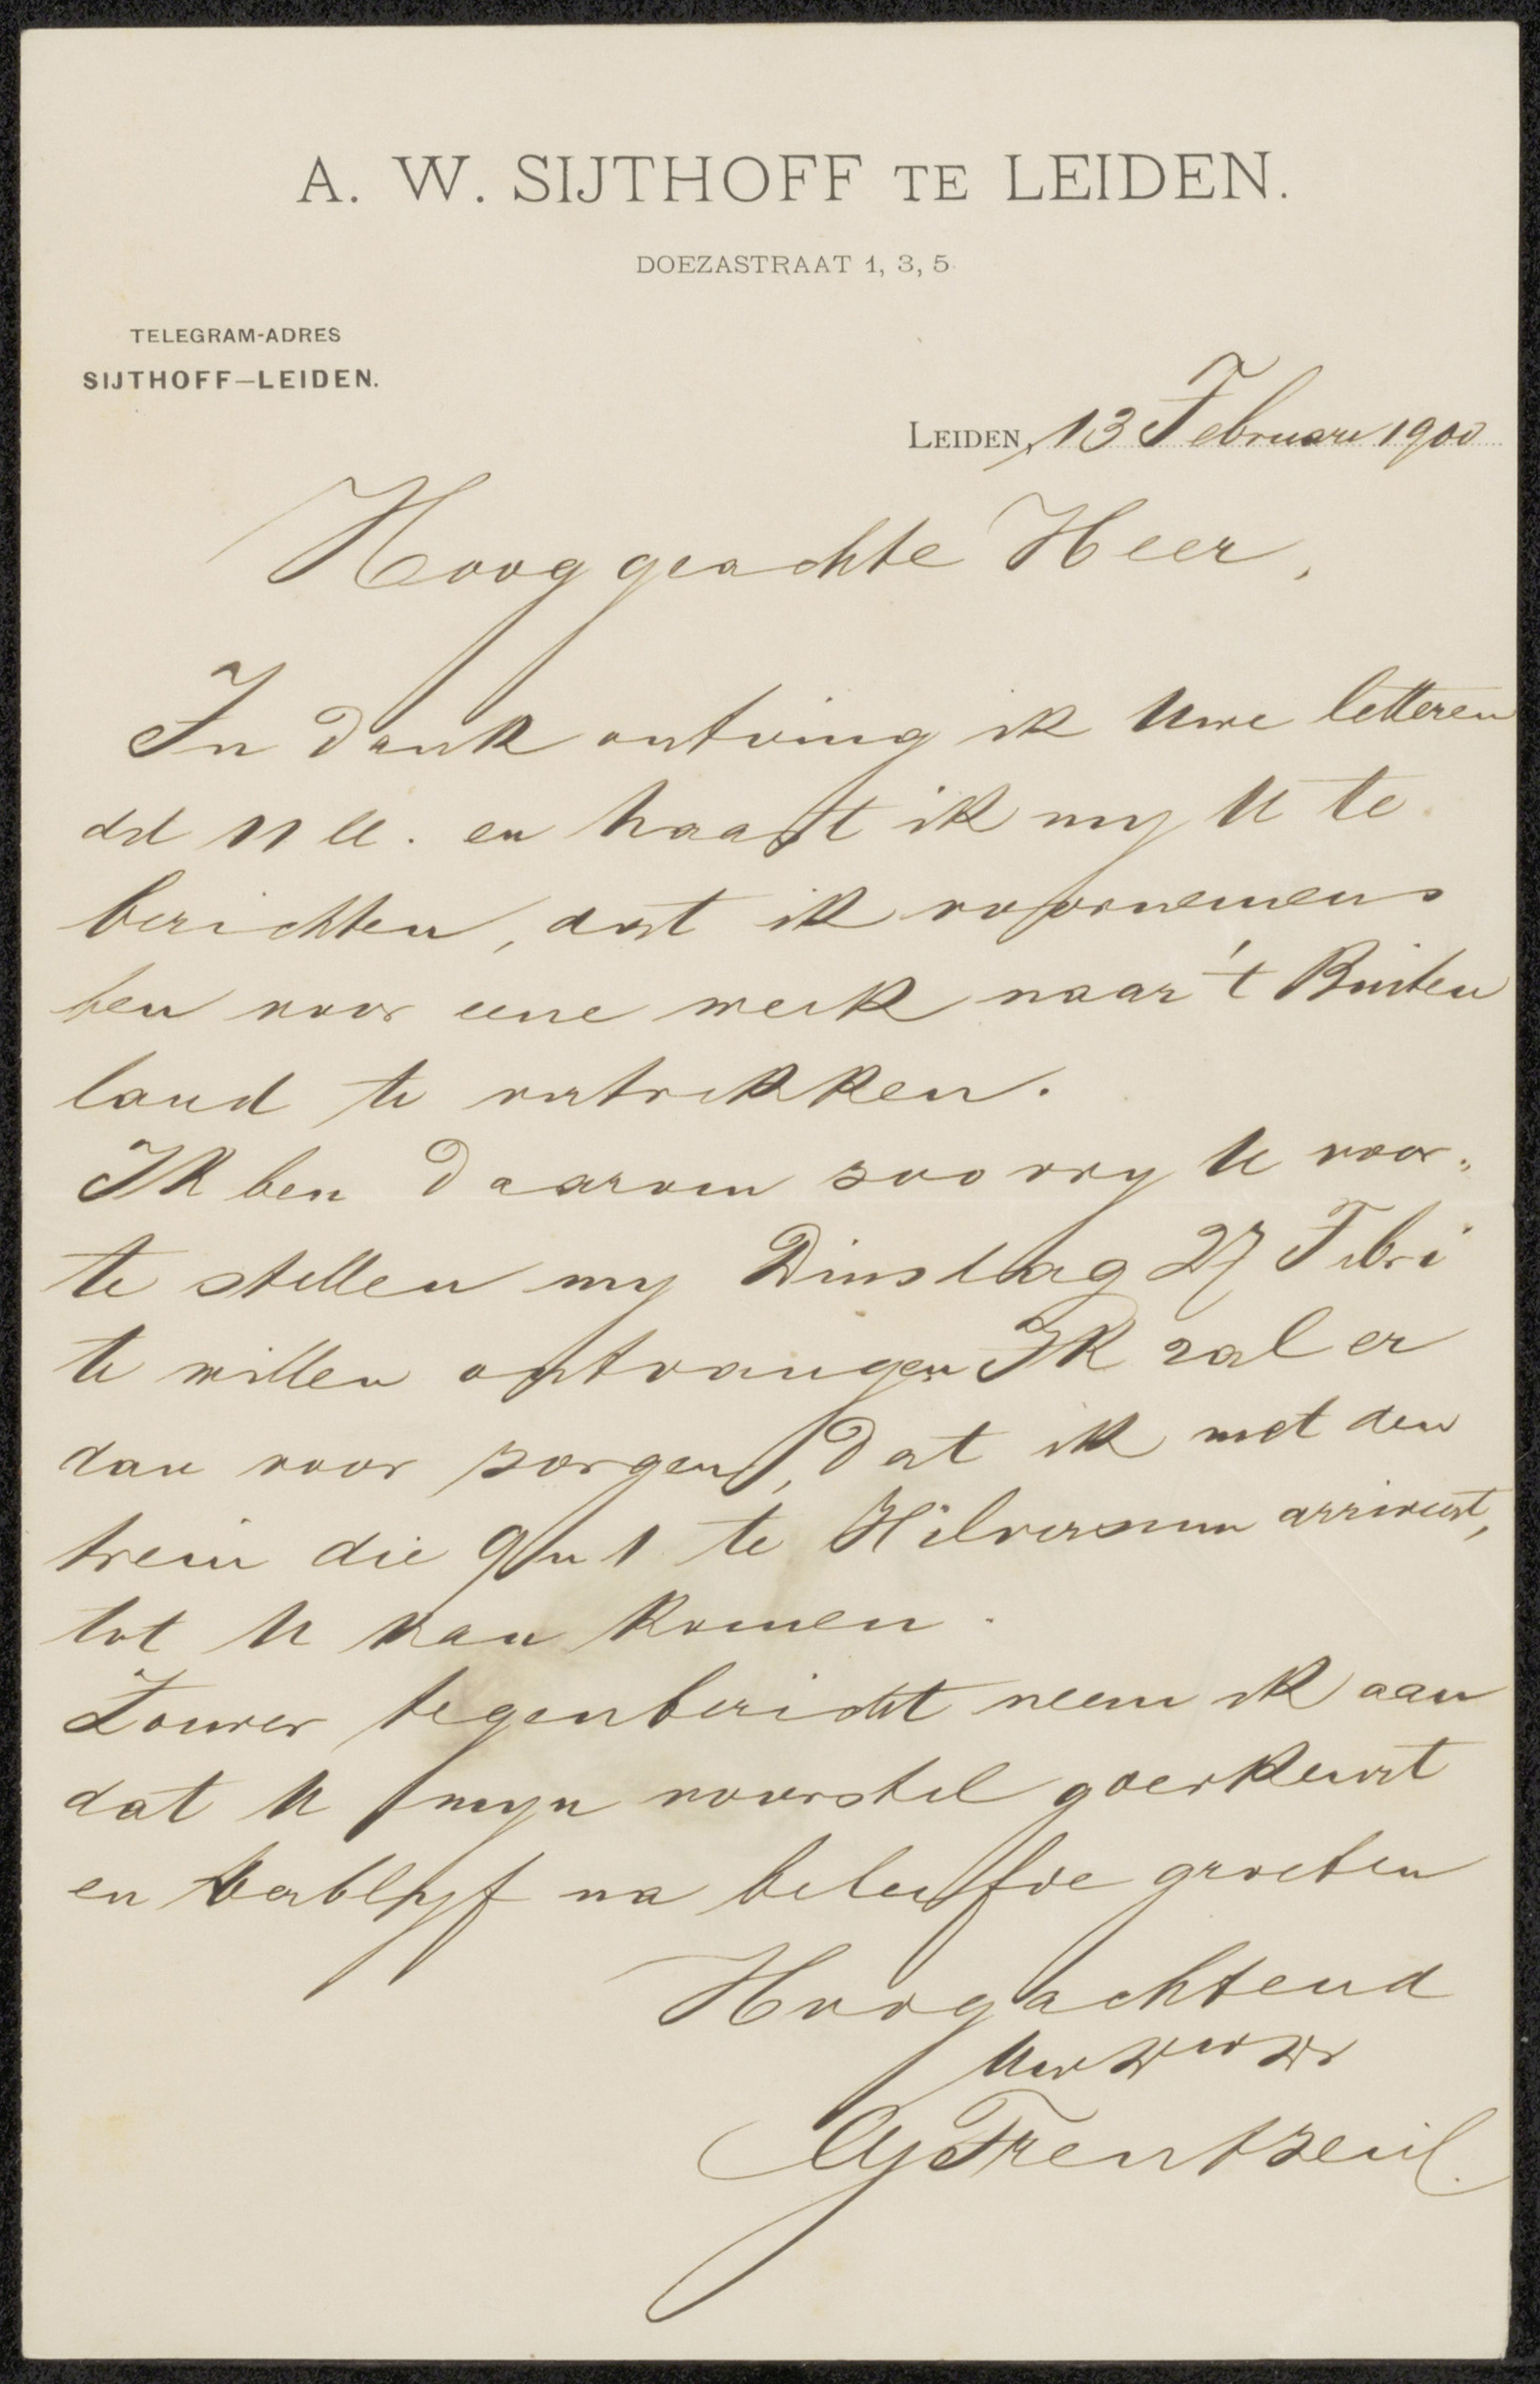 A. W. SIJTHOFF TE LEIDEN.
DOEZASTRAAT 1, 3, 5.
TELEGRAM-ADRES
SIJTHOFF—LEIDEN.
LEIDEN, 13 Februari 1900
Hooggeachte Heer,
In dank ontving ik Uwe letteren
dd 11 ll. en haast ik my U te
berichten, dat ik voornemens
ben voor eene week naar 't Buiten
land te vertrekken.
Ik ben daarom zoo vry U voor
te stellen my Dinsdag 27 Febri
te willen ontvangen Ik zal er
dan voor zorgen, dat ik met den
trein die 9 u 1 te Hilversum arriveert,
tot U kan komen.
Zonder tegenbericht neem ik aan
dat U myn voorstel goedkeurt
en verblyf na beleefde groeten
Hoogachtend
Uw
Frentzen